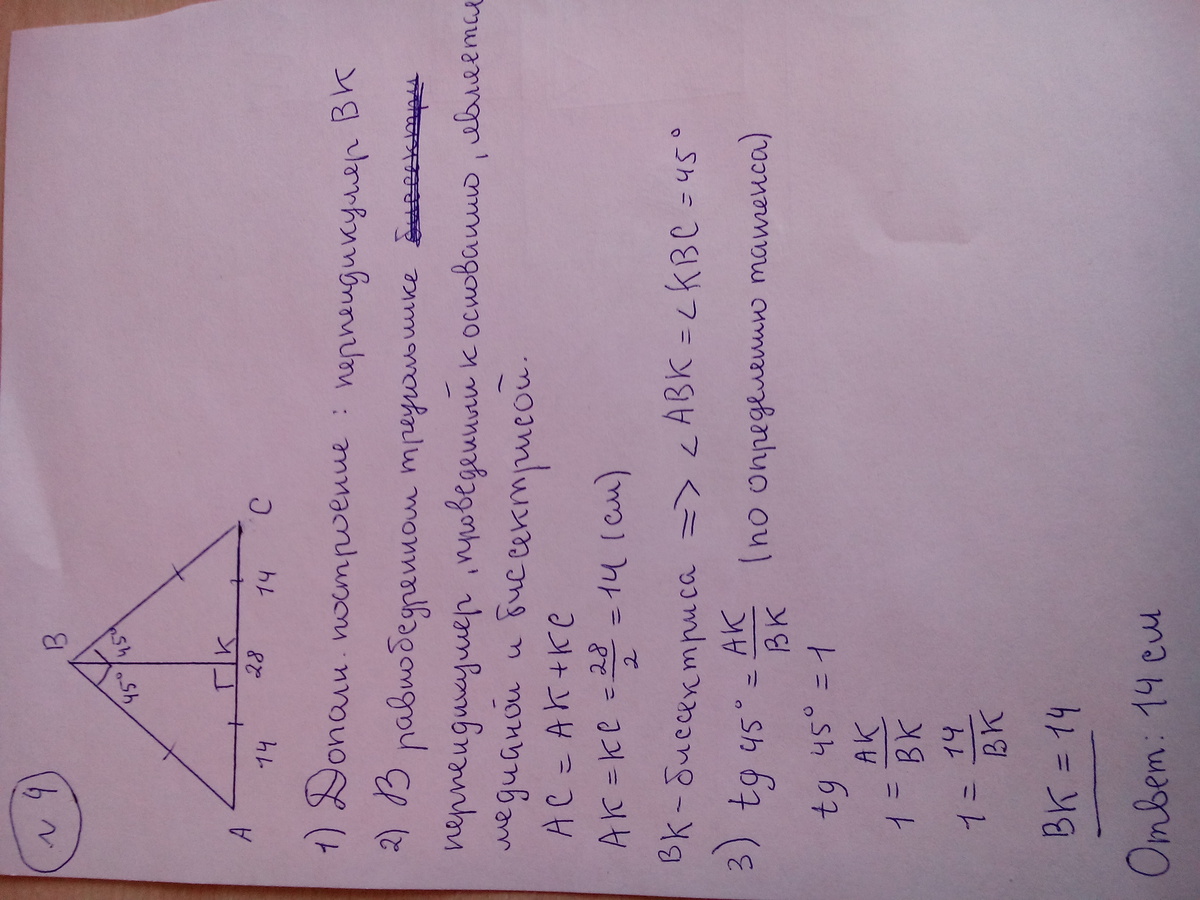 N 4
B
45° 45°
A 14 K 14 C
28
1) Дополн. построение: перпендикуляр BK
2) В равнобедренном треугольнике
перпендикуляр, проведенный к основанию, является
медианой и биссектрисой.
AC = AK + KC
AK = KC = 28/2 = 14 (см)
BK - биссектриса => <ABK = <KBC = 45°
3) tg 45° = AK/BK (по определению тангенса)
tg 45° = 1
1 = AK/BK
1 = 14/BK
BK = 14
Ответ: 14 см